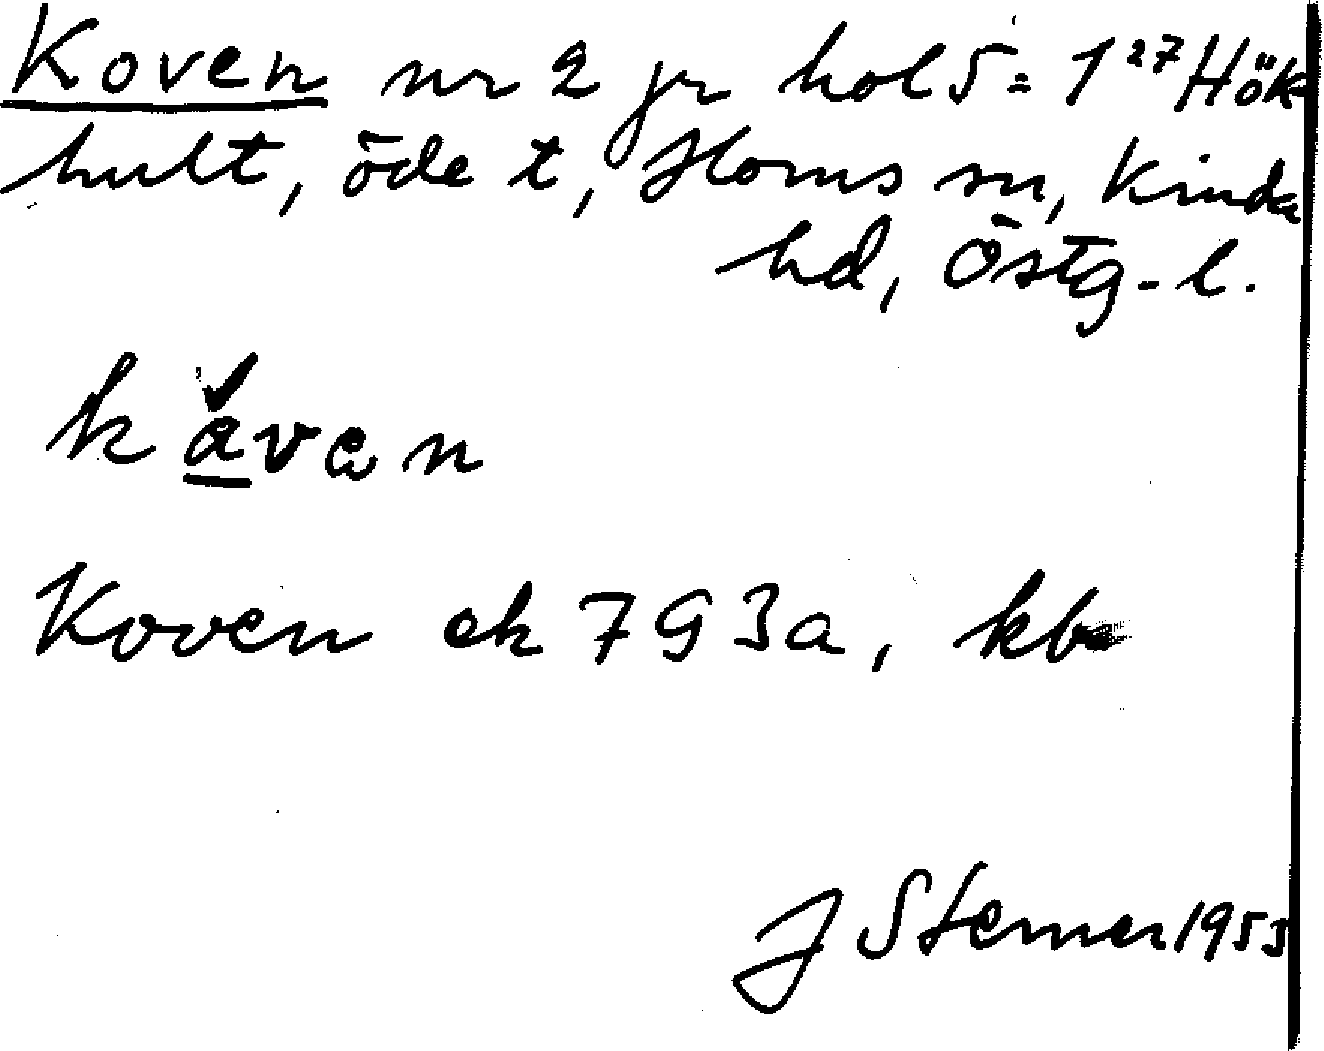 Koven nr 2 jr hol 5 = 1 27 Hök-
hult, öde t, Horns sn, Kinda
hd, Östg-l.
kåvan
Koven ek 793a, kb
J Sterner 1953